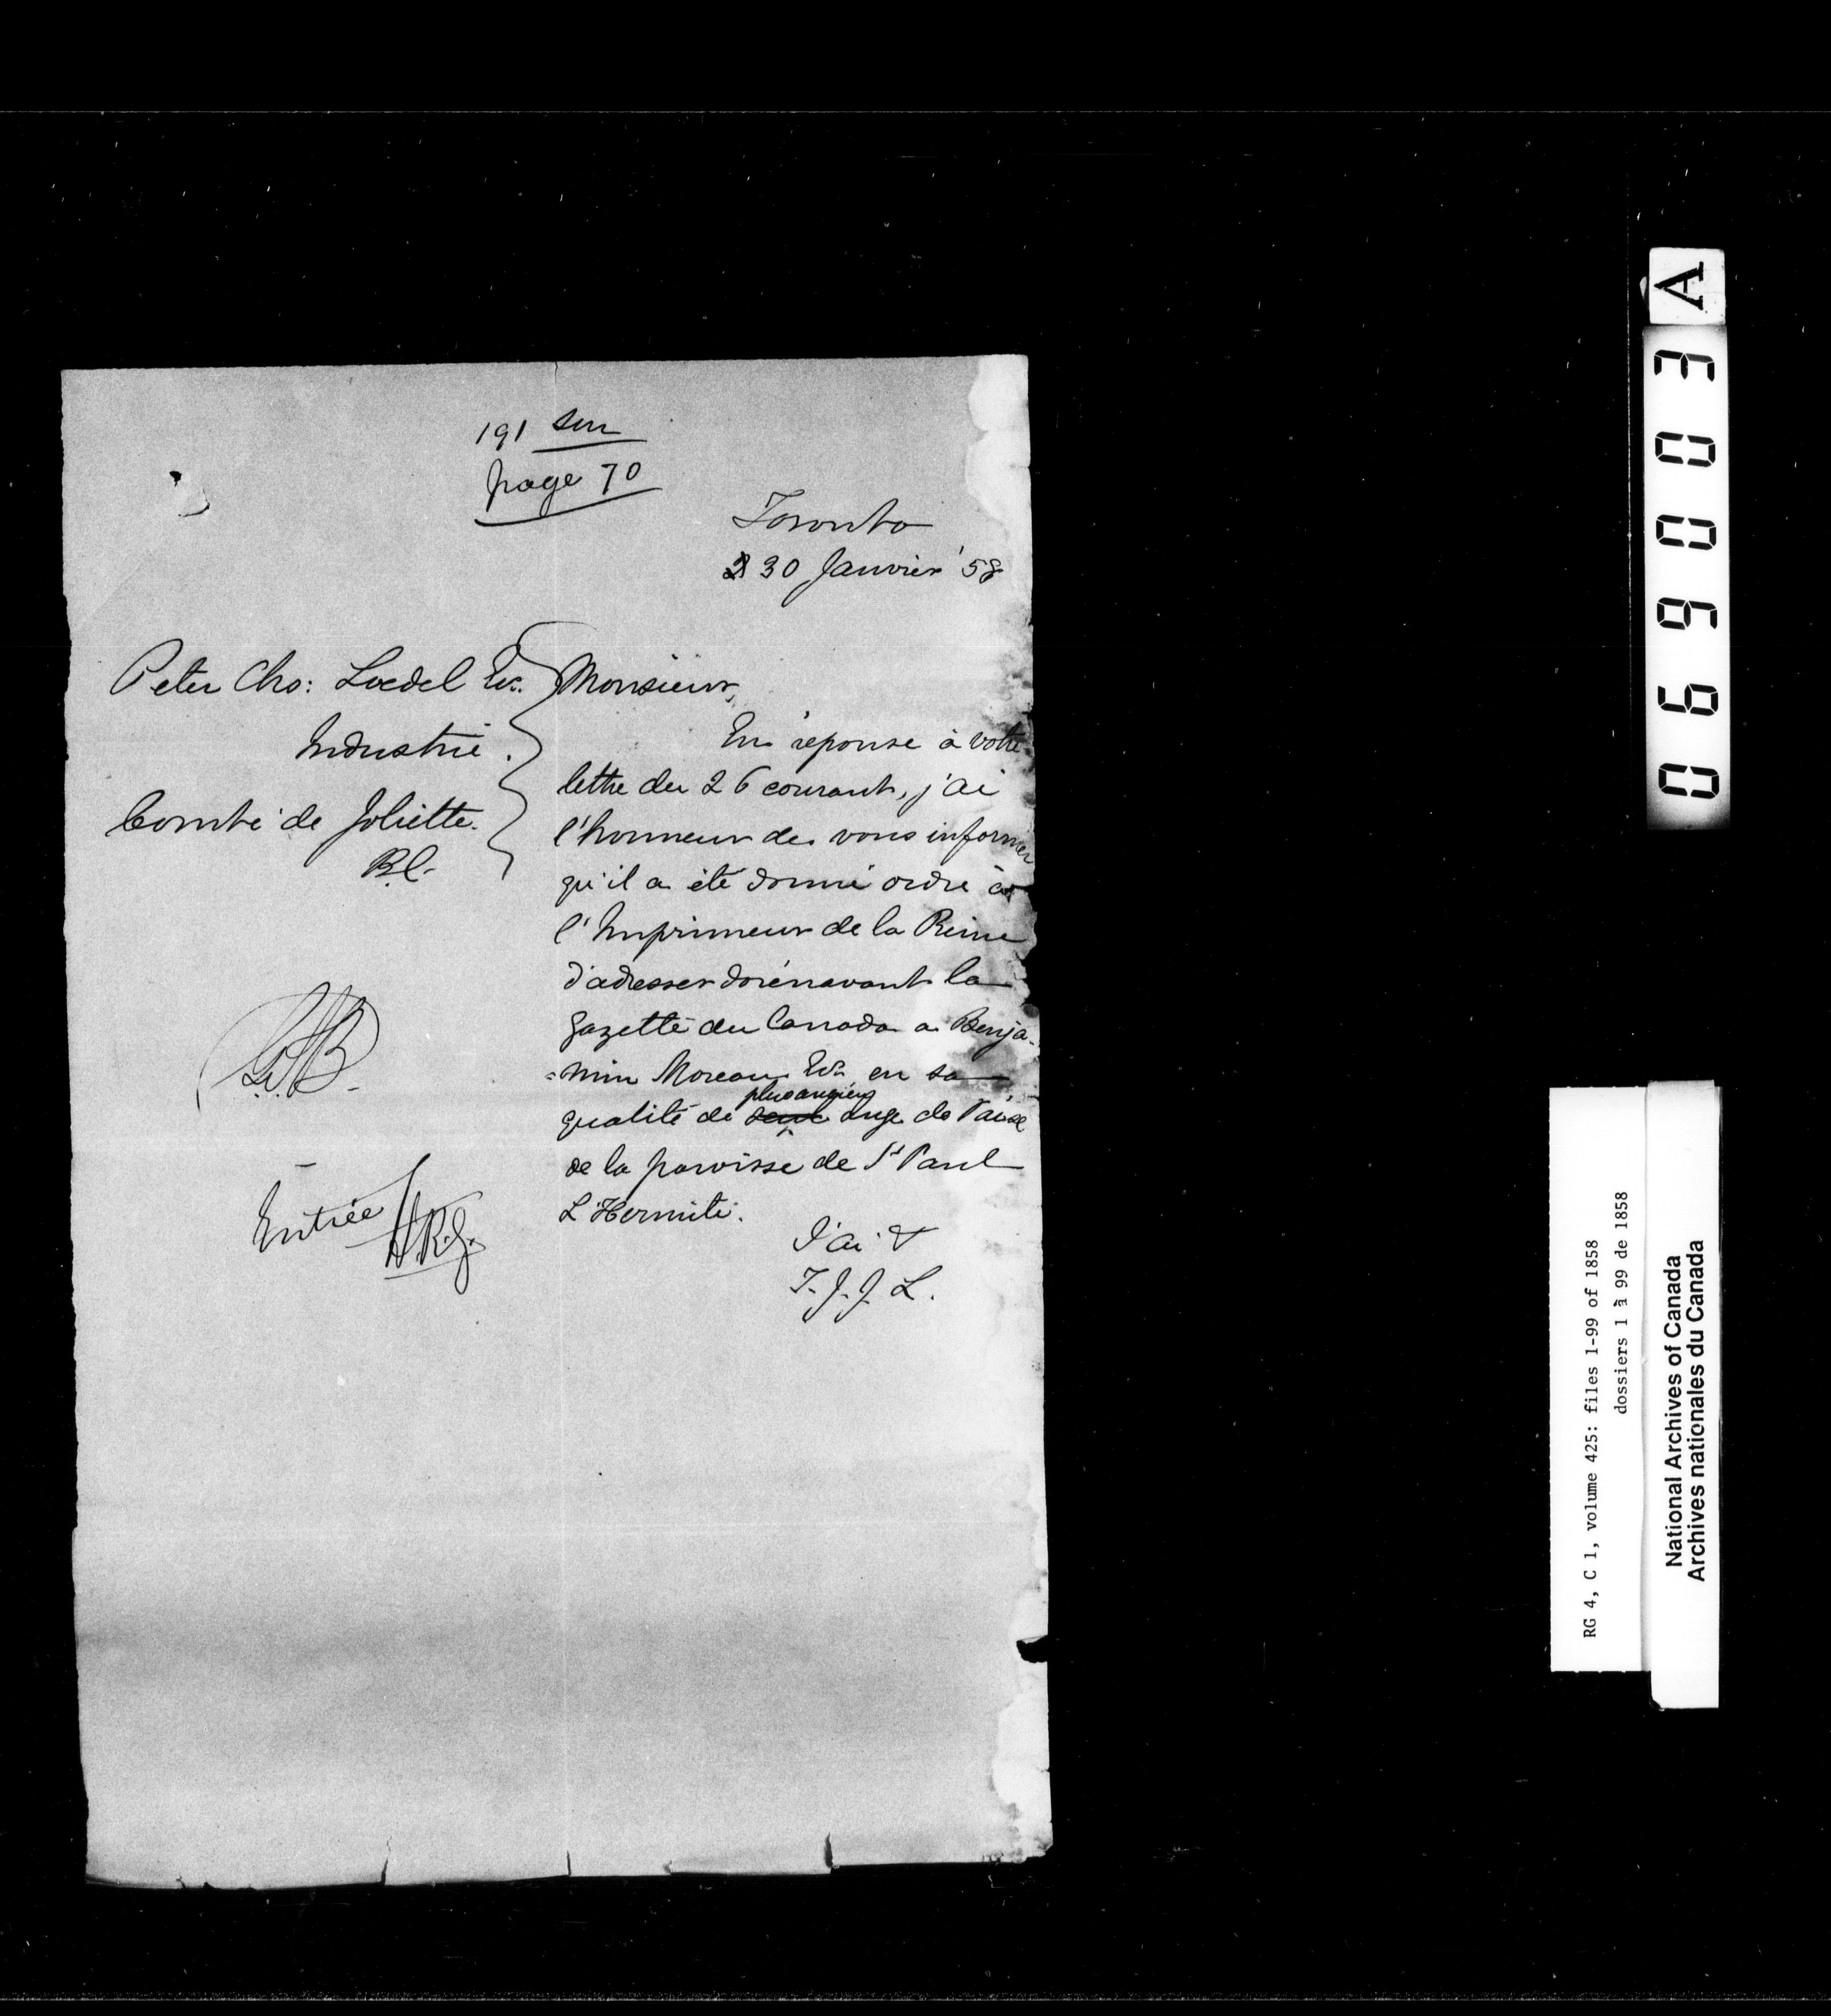 191 
page 70
Toronto
30 Janvier '58
Peter Chs: Loedel Ecr.
Industrie.
Comté de Joliette.
B.C.
Monsieur,
En réponse à votre
lettre du 26 courant, j'ai
l'honneur de vous informer
qu'il a été donné ordre à
l'Imprimeur de la Reine
d'adresser dorénavant la
Gazette du Canada a Benja-
=min Moreau Ecr. en sa
plus ancien
qualité de seul Juge de Paix
de la paroisse de St Paul
L'Hermite.
J'ai &
T.J.J.L.
Entrée
A
096003
RG 4, C 1, volume 425: files 1-99 of 1858
dossiers 1 à 99 de 1858
National Archives of Canada
Archives nationales du Canada